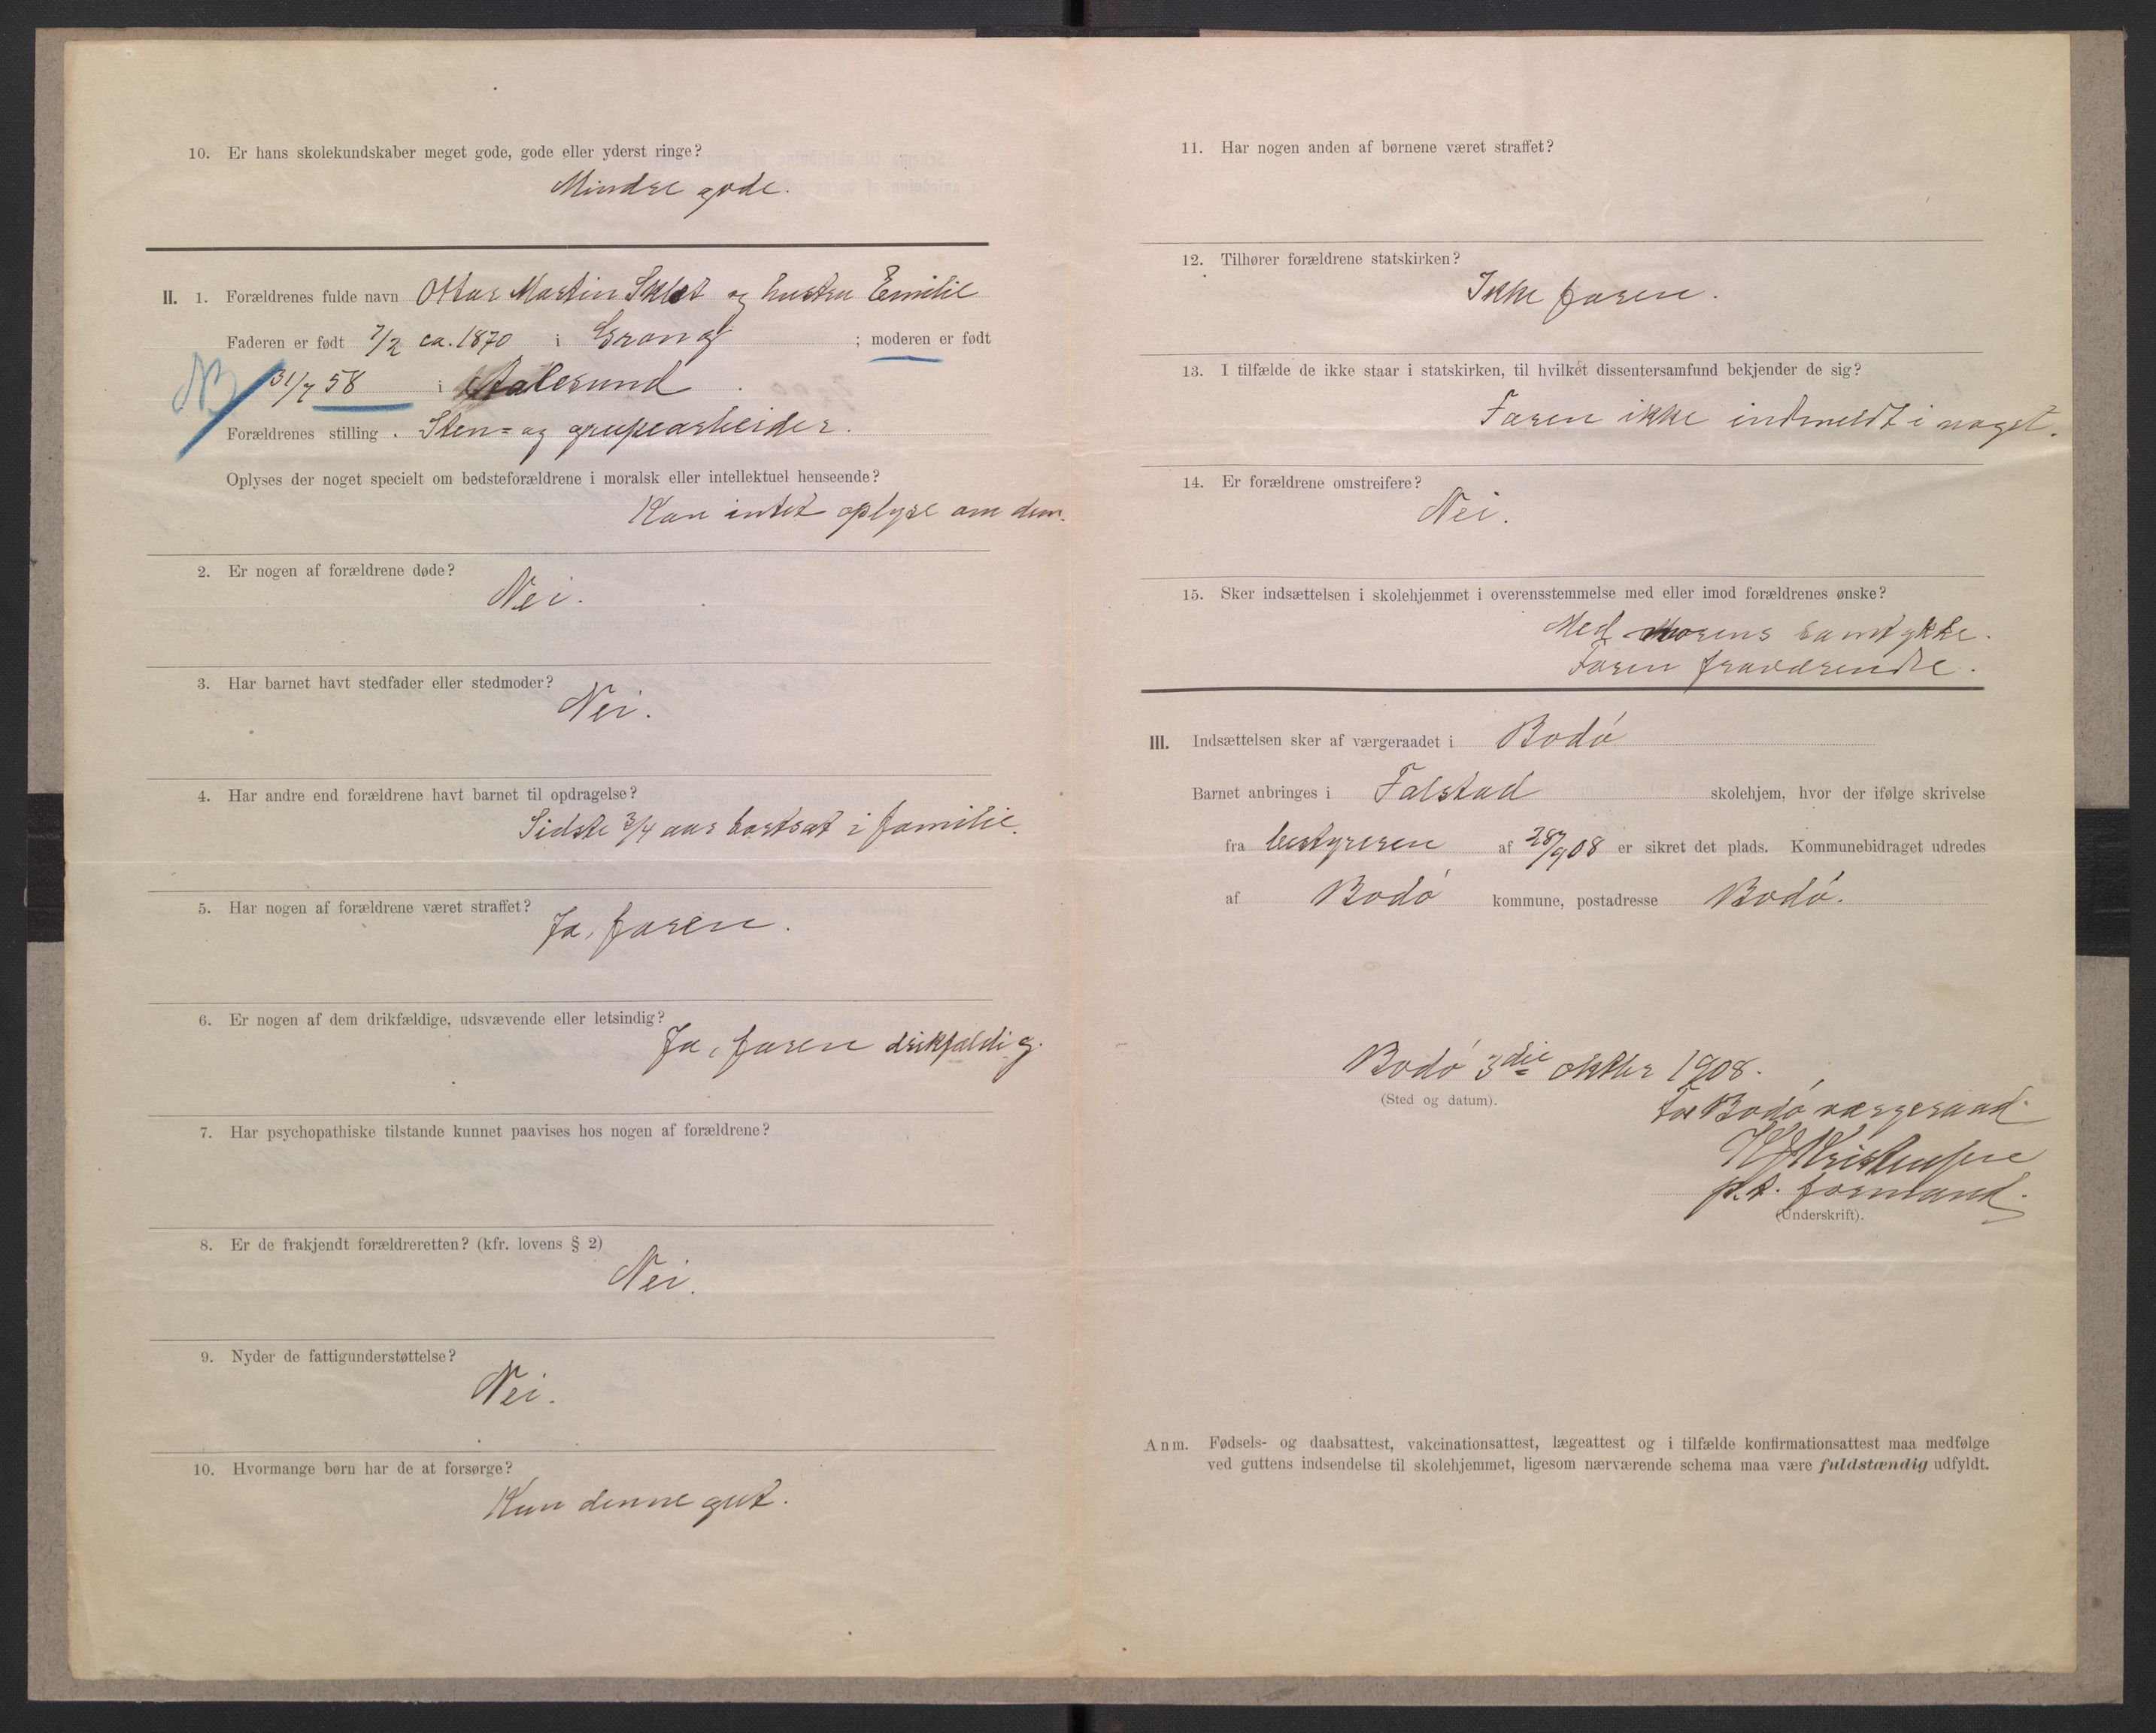 10. Er hans skolekundskaber meget gode, gode eller yderst ringe?
Mindre gode.
II. 1. Forældrenes fulde navn Ottar Martin og hustru Emilie
Faderen er født 7/2 ca. 1870 i Grong ; moderen er født
NB 31/7 58 i Aalesund.
Forældrenes stilling. Sten= og grubearbeider.
Oplyses der noget specielt om bedsteforældrene i moralsk eller intellektuel henseende?
Kan intet oplyse om dem.
2. Er nogen af forældrene døde?
Nei.
3. Har barnet havt stedfader eller stedmoder?
Nei.
4. Har andre end forældrene havt barnet til opdragelse?
Sidste 3/4 aar bortsat i familie.
5. Har nogen af forældrene været straffet?
Ja, faren.
6. Er nogen af dem drikfældige, udsvævende eller letsindig?
Ja, faren drikfældig.
7. Har psychopathiske tilstande kunnet paavises hos nogen af forældrene?
8. Er de frakjendt forældreretten? (kfr. lovens § 2)
Nei.
9. Nyder de fattigunderstøttelse?
Nei.
10. Hvormange børn har de at forsørge?
Kun denne gut.
11. Har nogen anden af børnene været straffet?
12. Tilhører forældrene statskirken?
Ikke faren.
13. I tilfælde de ikke staar i statskirken, til hvilket dissentersamfund bekjender de sig?
Faren ikke indmeldt i noget.
14. Er forældrene omstreifere?
Nei.
15. Sker indsættelsen i skolehjemmet i overensstemmelse med eller imod forældrenes ønske?
Med morens samtykke.
Faren fraværende.
III. Indsættelsen sker af værgeraadet i Bodø
Barnet anbringes i Falstad skolehjem, hvor der ifølge skrivelse
fra bestyreren af 28/9 08 er sikret det plads. Kommunebidraget udredes
af Bodø kommune, postadresse Bodø.
Bodø 3die oktbr 1908.
(Sted og datum).
For Bodø værgeraad.
Kristensen
p.t. formand.
(Underskrift).
Anm. Fødsels- og daabsattest, vakcinationsattest, lægeattest og i tilfælde konfirmationsattest maa medfølge
ved guttens indsendelse til skolehjemmet, ligesom nærværende schema maa være fuldstændig udfyldt.